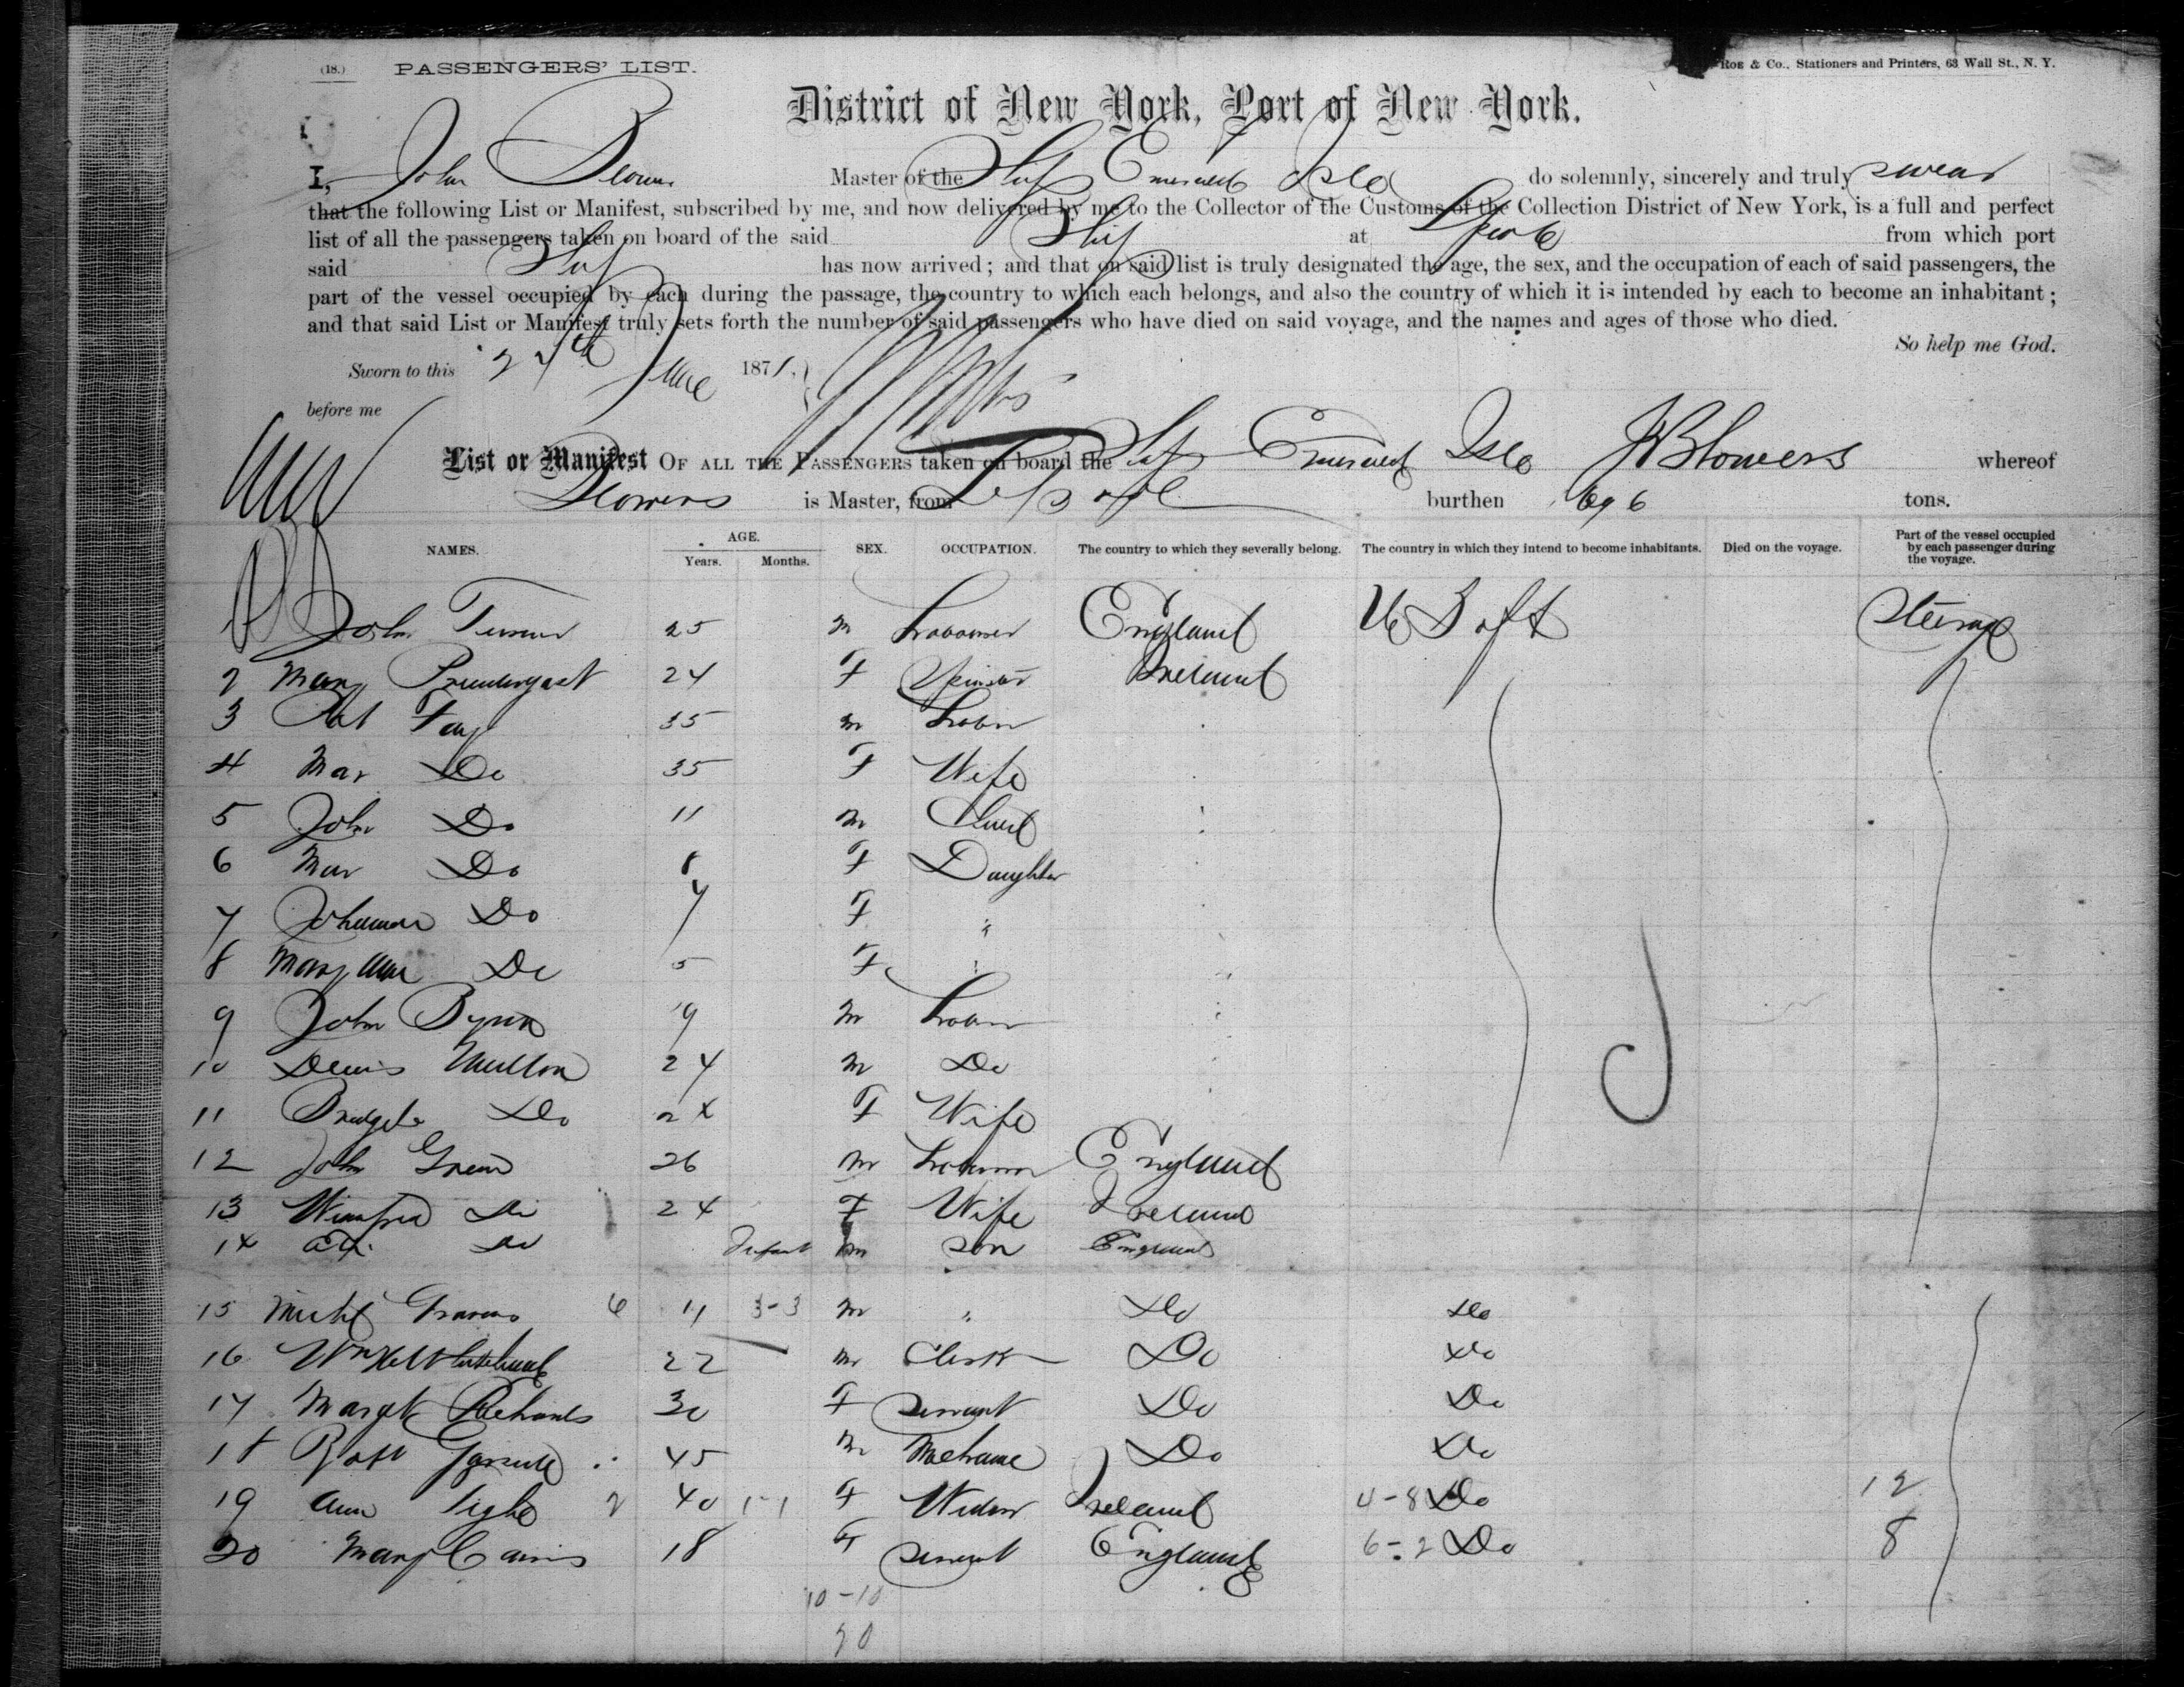 (18.) PASSENGERS' LIST.
Roe & Co., Stationers and Printers, 63 Wall St., N. Y.
District of New York, Port of New York.
I, John Blowers Master of the Ship Emerald Isle do solemnly, sincerely and truly swear
that the following List or Manifest, subscribed by me, and now delivered by me to the Collector of the Customs of the Collection District of New York, is a full and perfect
list of all the passengers taken on board of the said Ship at Lpool from which port
said Ship has now arrived; and that on said list is truly designated the age, the sex, and the occupation of each of said passengers, the
part of the vessel occupied by each during the passage, the country to which each belongs, and also the country of which it is intended by each to become an inhabitant;
and that said List or Manifest truly sets forth the number of said passengers who have died on said voyage, and the names and ages of those who died.
So help me God.
Sworn to this June 1871.
before me
List or Manifest OF ALL THE PASSENGERS taken on board the Ship Emerald Isle J Blowers whereof
Blowers is Master, from burthen tons.
NAMES. AGE. Years. Months. SEX. OCCUPATION. The country to which they severally belong. The country in which they intend to become inhabitants. Died on the voyage. Part of the vessel occupied by each passenger during the voyage.
John 25 m Labourer England U S of A Steerage
2 Mary Prendergast 24 F Spinster Ireland
3 Pat Fay 35 m Labr
4 Mar Do 35 F Wife
5 John Do 11 m Child
6 Mar Do 8 F Daughter
7 Johanna Do 7 F "
8 Mary Ann Do 5 F "
9 John Byrne 19 m Labr
10 Denis 24 m Do
11 Bridget Do 24 F Wife
12 John Green 26 m Labourer England
13 Winifred Do 24 F Wife Ireland
14 Do Infant m son England
15 Michl 6 11 3-3 m " Do Do
16 Wm Whitehead 22 m Clerk Do Do
17 Margt Richards 30 F Servant Do Do
18 Robt 45 m Mechanic Do Do
19 Ann 2 40 1-1 F Widow Ireland 4-8 Do 12
20 Mary Cairns 18 F Servant England 6-2 Do 8
10-10
20